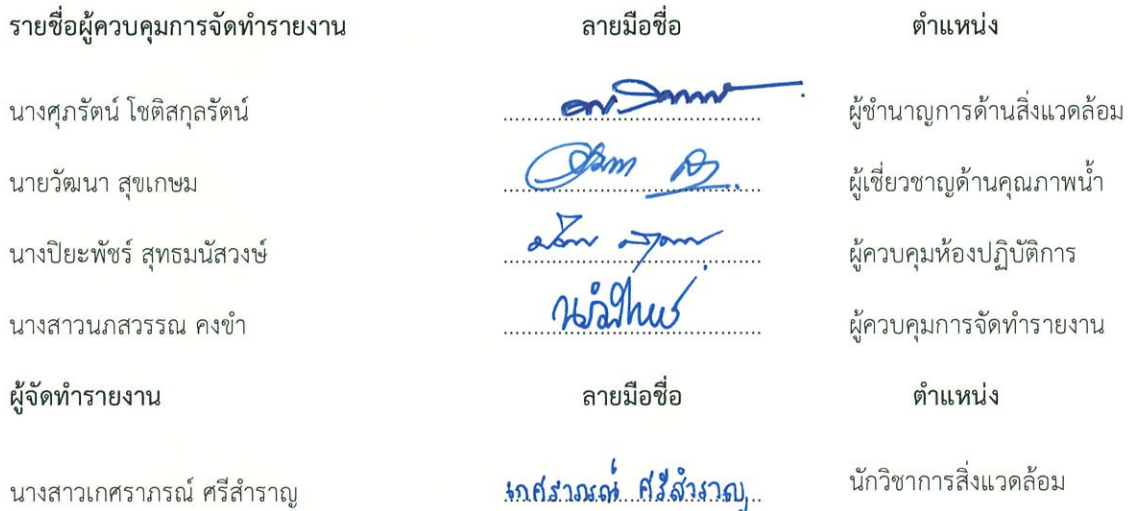 รายชื่อผู้ควบคุมการจัดทำรายงาน ลายมือชื่อ ตำแหน่ง
นางศุภรัตน์ โชติสกุลรัตน์ ผู้ชำนาญการด้านสิ่งแวดล้อม
นายวัฒนา สุขเกษม ผู้เชี่ยวชาญด้านคุณภาพน้ำ
นางปิยะพัชร์ สุทธมนัสวงษ์ ผู้ควบคุมห้องปฏิบัติการ
นางสาวนภสวรรณ คงขำ ผู้ควบคุมการจัดทำรายงาน
ผู้จัดทำรายงาน ลายมือชื่อ ตำแหน่ง
นางสาวเกศราภรณ์ ศรีสำราญ เกศราภรณ์ ศรีสำราญ นักวิชาการสิ่งแวดล้อม